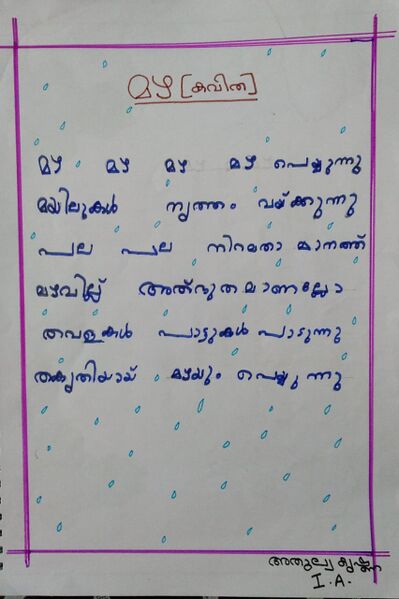 മഴ [കവിത]
മഴ മഴ മഴ മഴ പെയ്യുന്നു
മയിലുകൾ നൃത്തം വയ്ക്കുന്നു
പല പല നിറമതാ മാനത്ത്
മഴവില്ല് അത്ഭുതമാണല്ലോ
തവളകൾ പാട്ടുകൾ പാടുന്നു
തകൃതിയായ് മഴയും പെയ്യുന്നു
അതുല്യ കൃഷ്ണ
I.A.